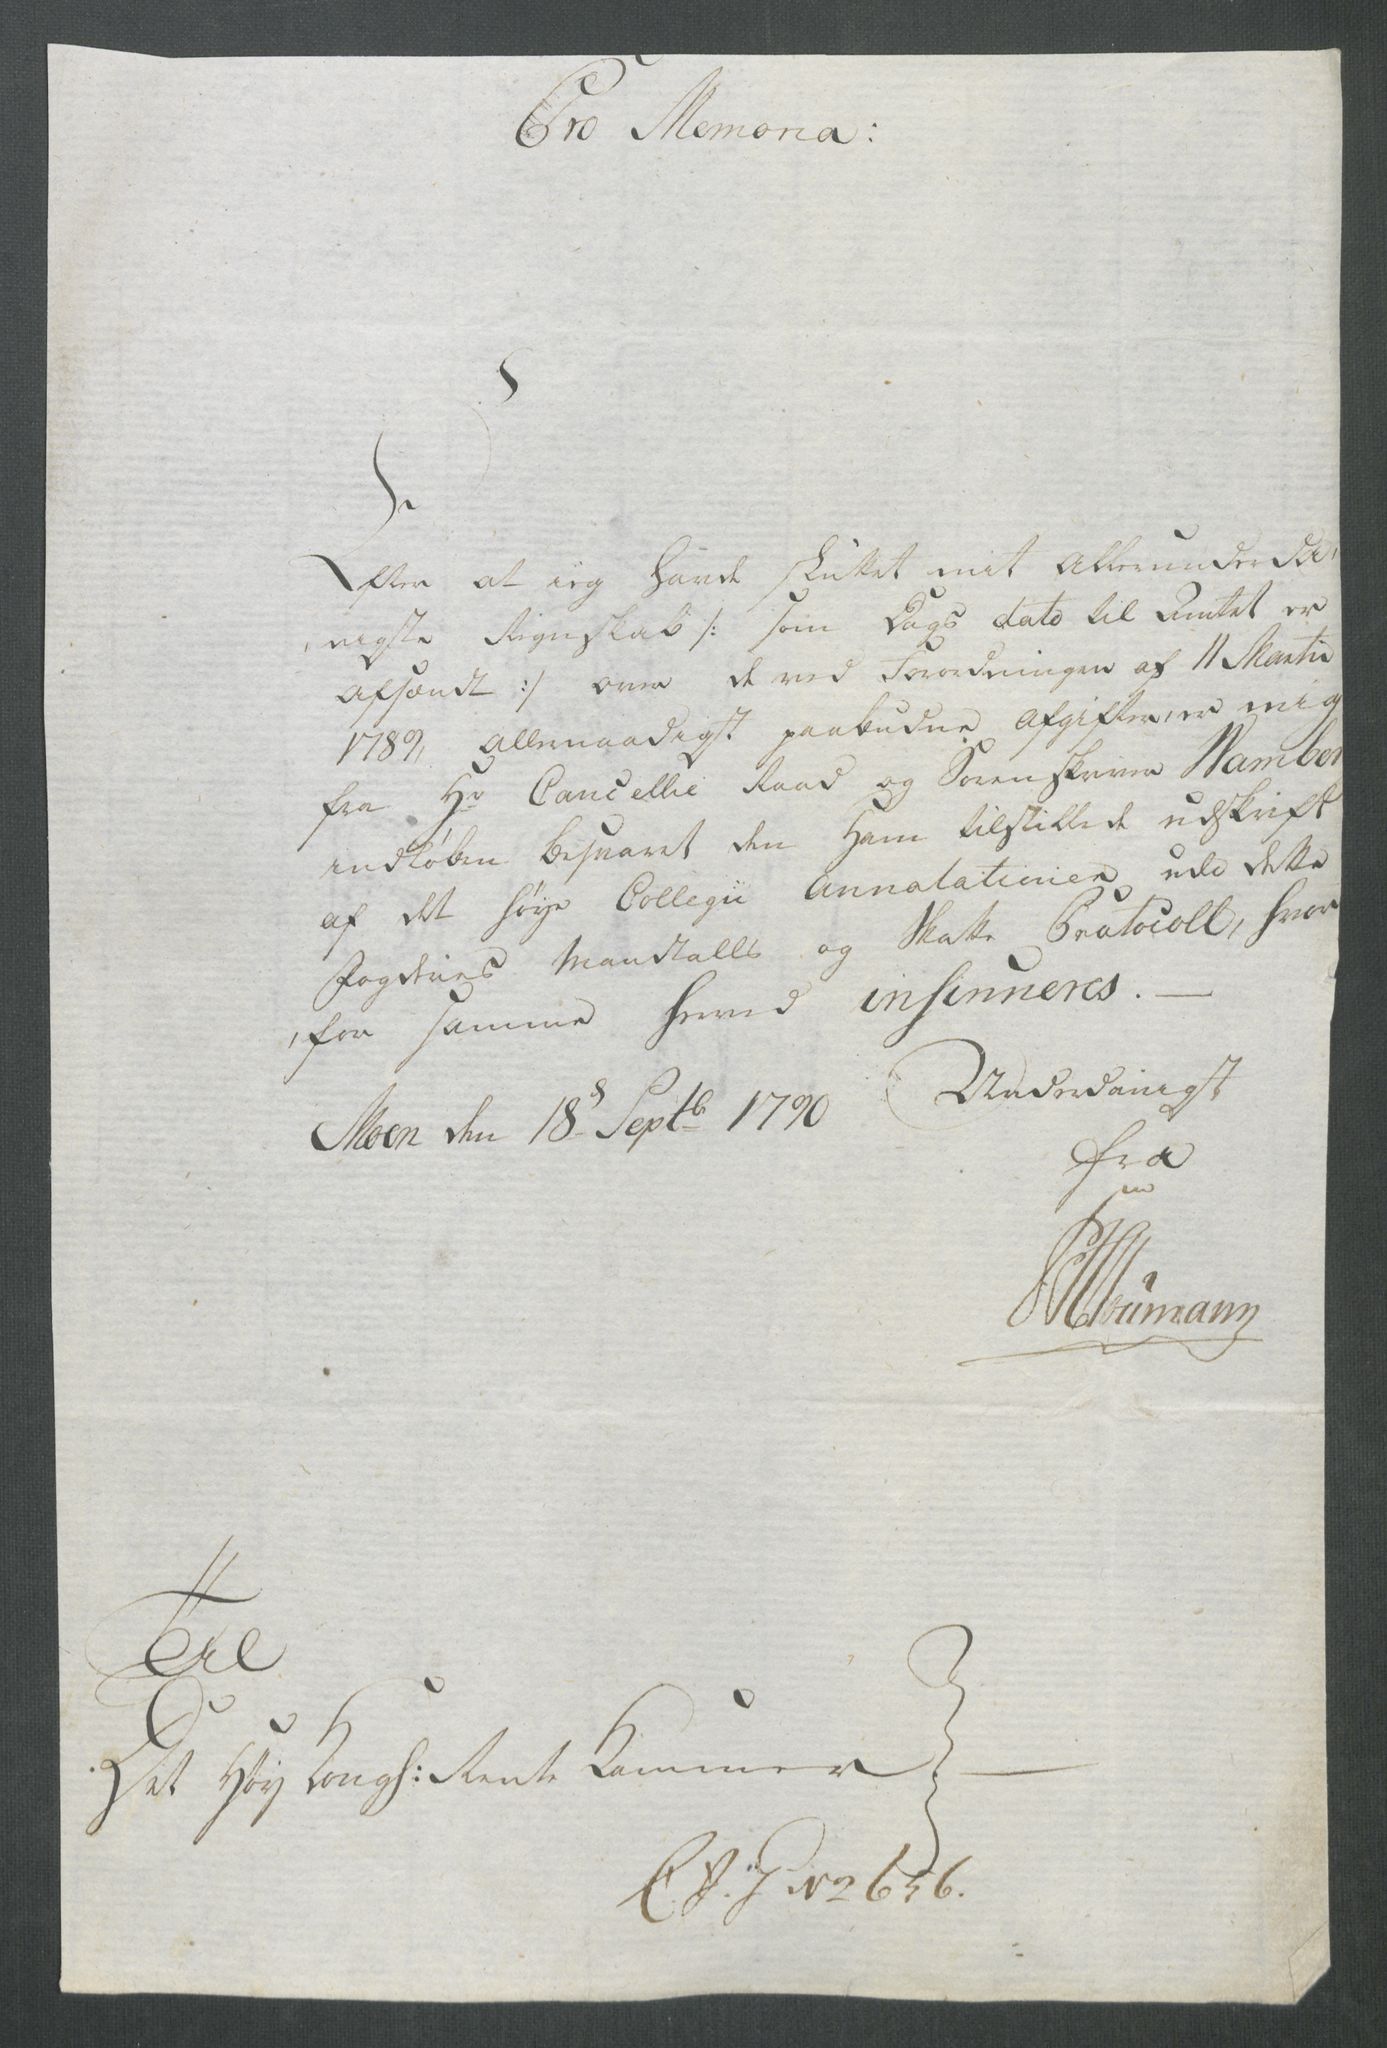 Pro Memoria:
Efter at ieg havde sluttet mit Allerunderda,
,nigste Regnskab /: som Dags dato til Amtet er
afsendt :/ over de ved Forordningen af 11 Martii
1789, allernaadigst paabudne Afgifter, er mig
fra Hr Cancellie Raad og Sorenskriver Wamber
indløben besvaret den Ham tilstillede udskrift
af det høye Collegii Annotationer udi dette
Fogderies Mandtalls og Skatte Protocoll, hvor
,for samme herved insinueres. —
Moen den 18de Septb 1790
Underdanigst
fra
Til
Det Høy Kongl: Rente Kammer
N 2656.